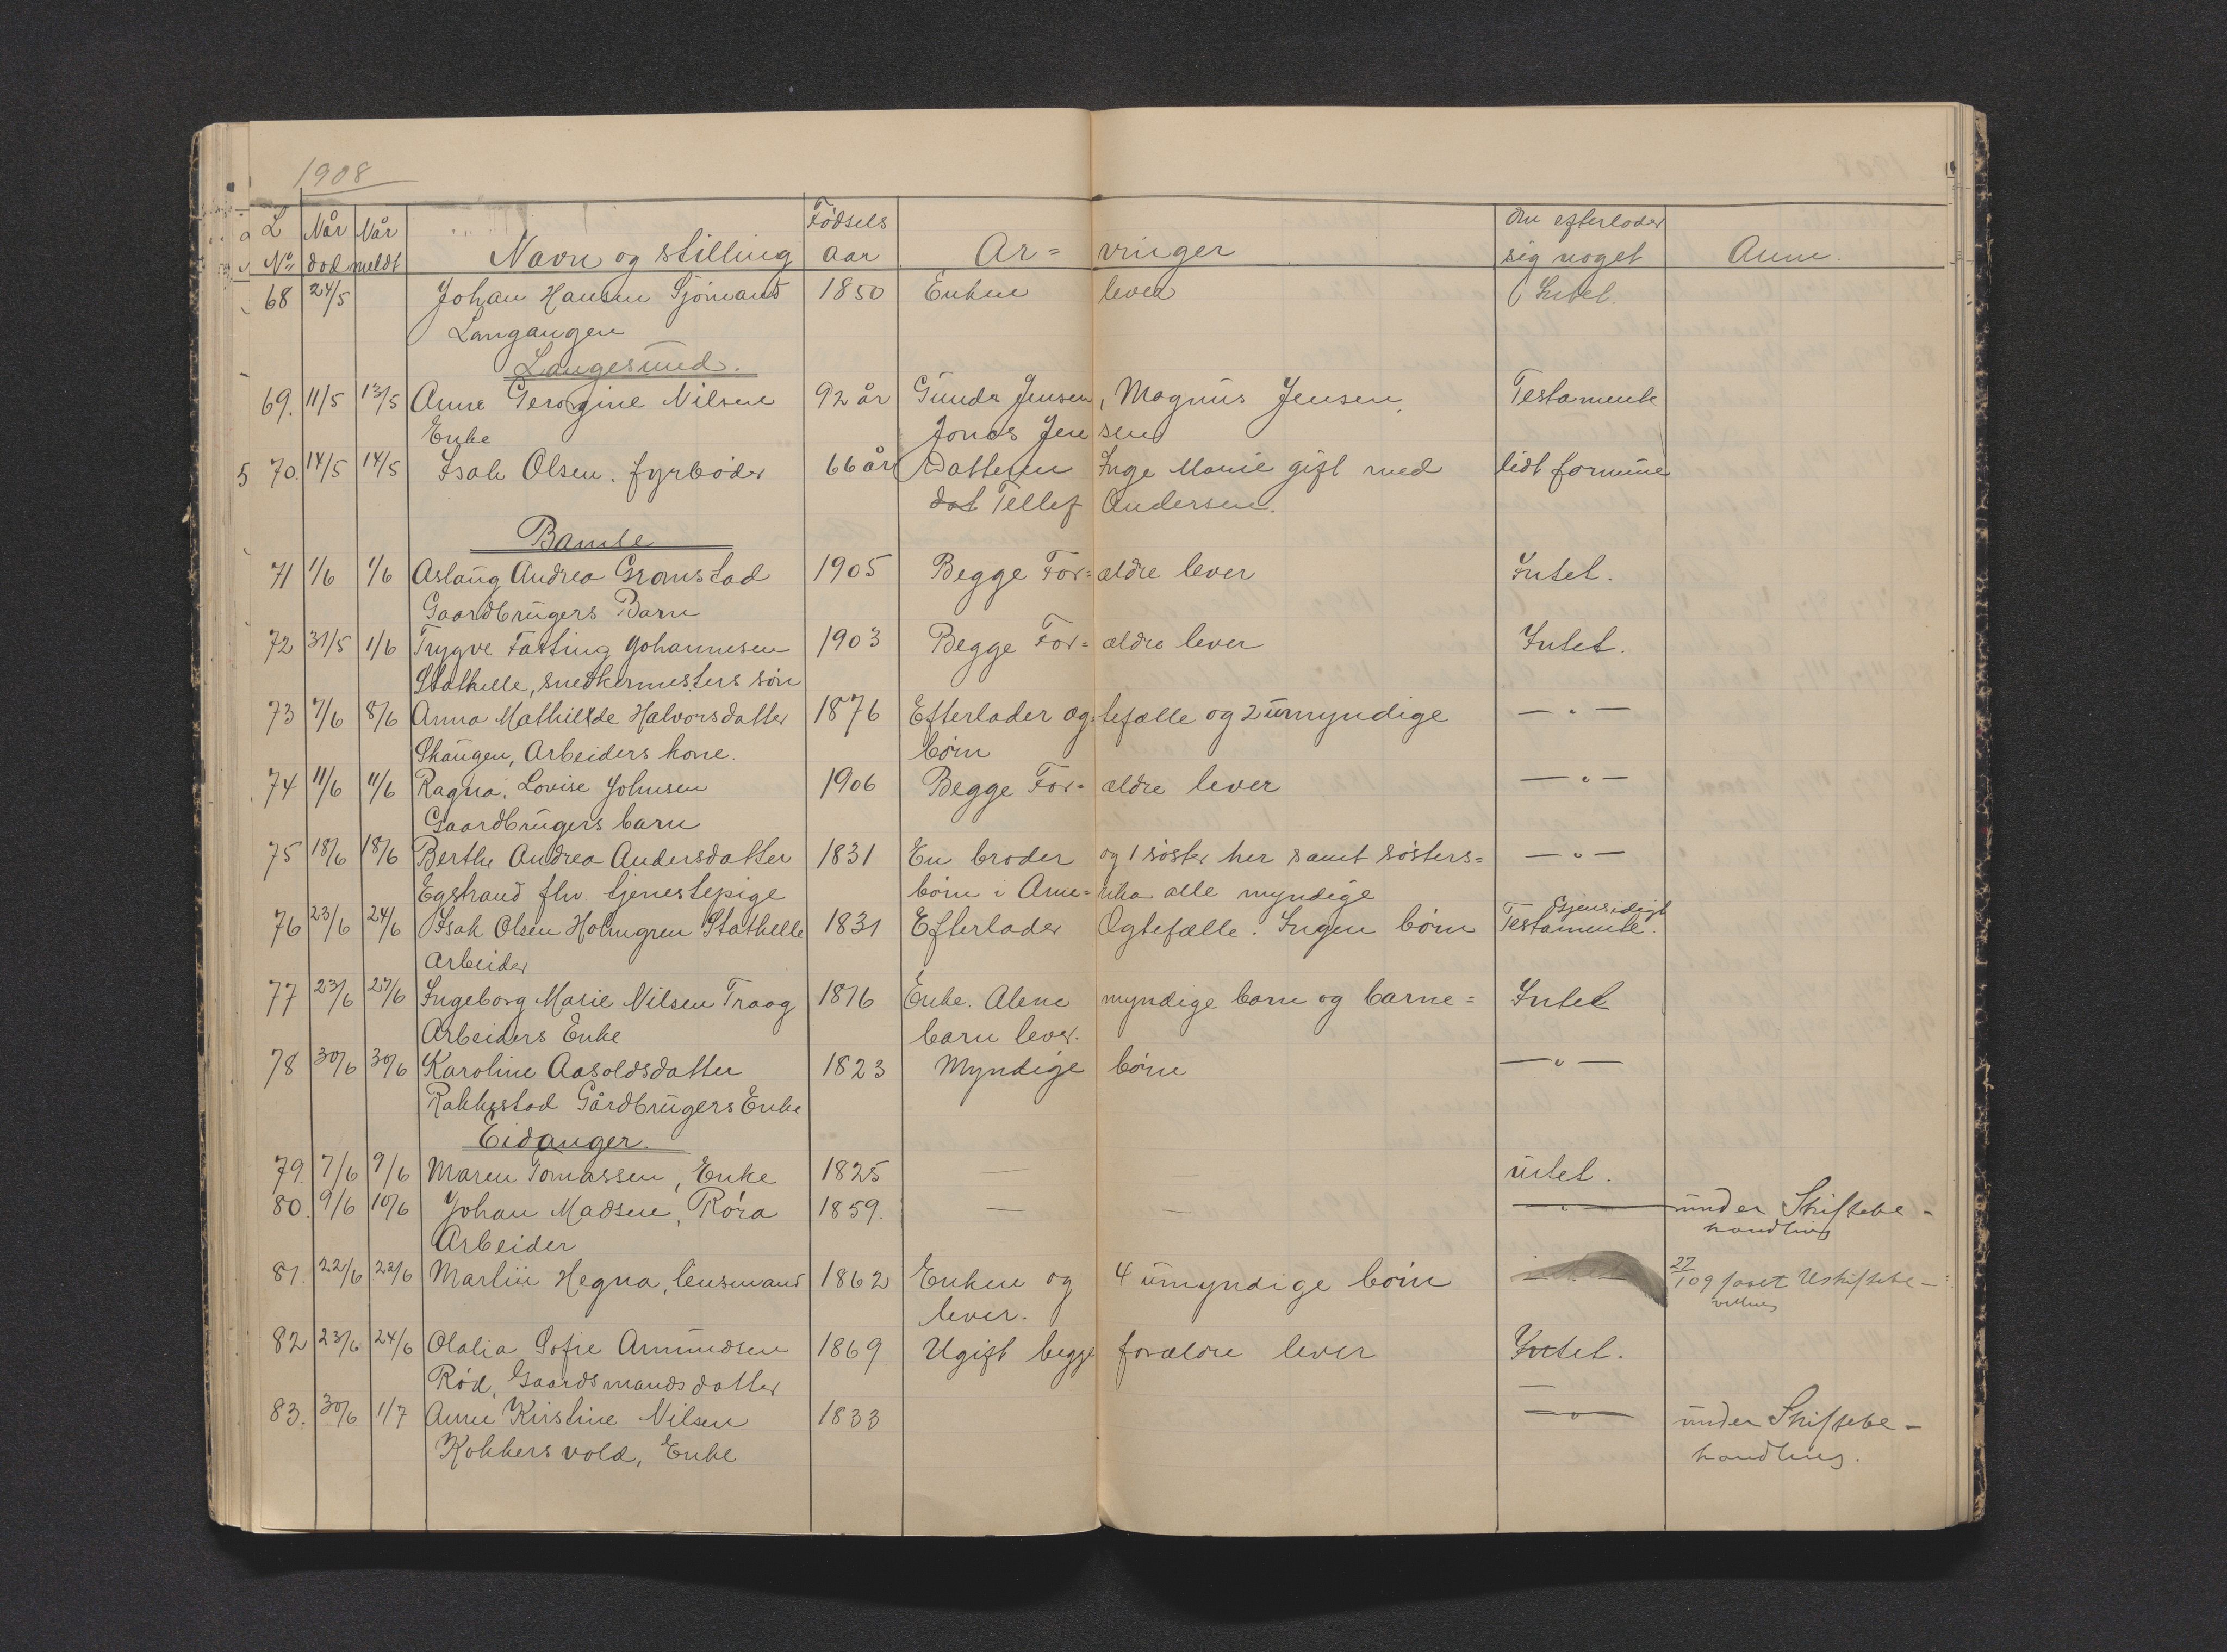 1908
L Når Når Fødsels Om efterlader
No død meldt Navn og stilling aar Ar= vinger sig noget Anm.
68 24/5 Johan Hansen Sjømand 1850 Enken lever Intet.
Langangen
Langesund.
69. 11/5 13/5 Anne Gerorgine Nilsen 92 år Gunda Jensen, Magnus Jensen, Testamente
Enke Jonas Jensen
5 70. 14/5 14/5 Isak Olsen. fyrbøder 66 år Datteren Inge Marie gift med lidt formue
Tellef Andersen.
Bamle
71 1/6 1/6 Aslaug Andrea Gromstad 1905 Begge For= ældre lever Intet.
Gaardbrugers Barn
72 31/5 1/6 Trygve Fasting Johannesen 1903 Begge For= ældre lever Intet.
Stathelle, snedkermesters søn
73 7/6 8/6 Anna Mathilde Halvorsdatter 1876 Efterlader ægtefælle og 2 umyndige — " —
Skaugen, Arbeiders kone. børn
74 11/6 11/6 Ragna Lovise Johnsen 1906 Begge For= ældre lever — " —
Gaardbrugers barn
75 18/6 18/6 Berthe Andrea Andersdatter 1831 En broder og 1 søster her samt søsters= — " —
Egstrand fhv. tjenestepige børn i Ame= rika alle myndige
76 23/6 24/6 Isak Olsen Holmgren Stathelle 1831 Efterlader Ægtefælle. Ingen børn Gjensidigt Testamente.
Arbeider
77 23/6 27/6 Ingeborg Marie Nilsen Traag 1816 Enke. Alene myndige barn og barne= Intet
Arbeiders Enke barn lever.
78 30/6 30/6 Karoline Aasoldsdatter 1823 Myndige børn — " —
Rakkestad Gårdbrugers Enke
Eidanger.
79. 7/6 9/6 Maren Tomassen, Enke 1825 — — intet.
80. 9/6 10/6 Johan Madsen, Røra 1859. — — — " — under Skiftebe-
Arbeider handling
81. 22/6 22/6 Martin Hegna, lensmand 1862 Enken og 4 umyndige børn 27/1 09 Uskiftebe-
lever. villing
82 23/6 24/6 Olalia Sofie Amundsen 1869 Ugift begge forældre lever Intet.
Rød, Gaardsmands datter —
83. 30/6 1/7 Anne Kirstine Nilsen 1833 — " — under Skiftebe-
Kokkersvold, Enke handling.